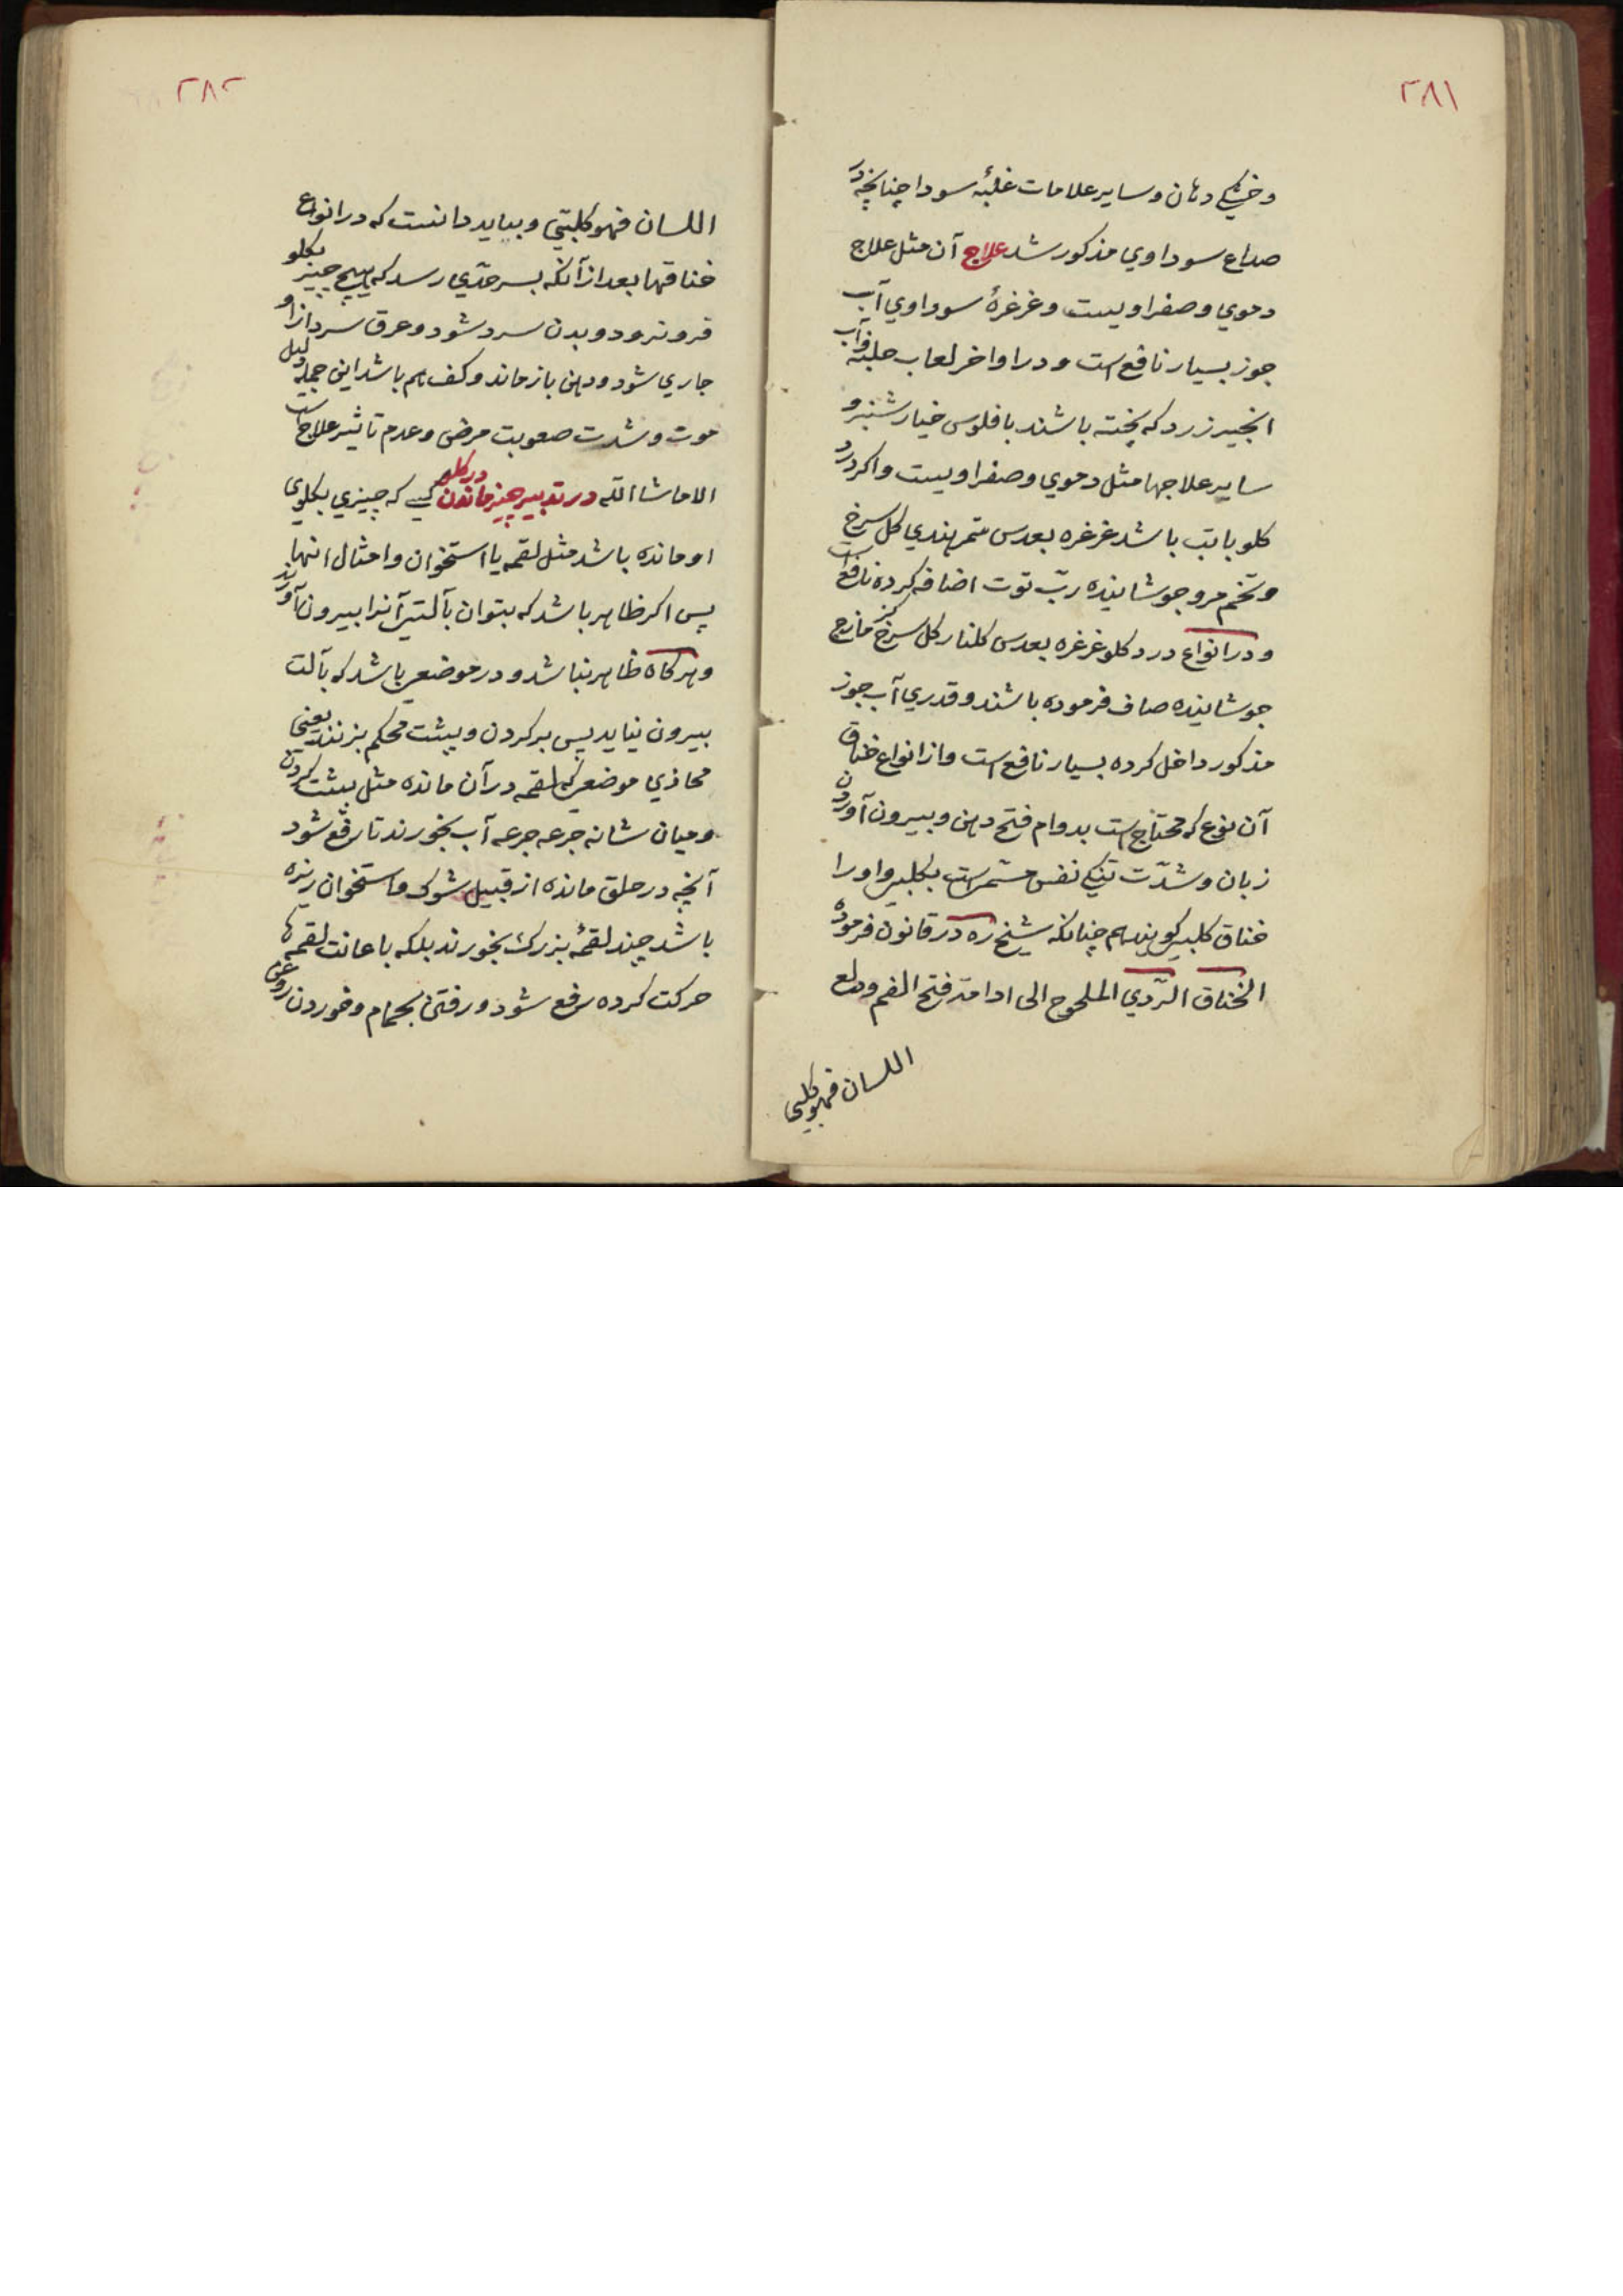 ۲۸۱
وخشکی دهان وسایر علامات غلبهٔ سودا چنانچه در
صداع سوداوي مذکور شد علاج آن مثل علاج
دموي وصفراویست وغرغرهٔ سوداوي آب
جوز بسیار نافع است ودر اواخر لعاب حلبه وآب
انجیر زرد که پخته باشند با فلوس خیارشنبر و
سایر علاجها مثل دموي وصفراویست واکر درد
کلو با تب باشد غرغره بعدس تمرهندي کل سرخ
وتخم مرو جوشانیده ربّ توت اضافه کرده نافع است
ودر انواع درد کلو غرغره بعدس کلنار کل سرخ مازج
جوشانیده صاف فرموده باشند وقدري آب جوز
مذکور داخل کرده بسیار نافع است واز انواع خناق
آن نوع که محتاج است بدوام فتح دهن وبیرون آوردن
زبان وشدّت تنکی نفس مشهر است بکلبی واورا
خناق کلبی کویند هم چنانکه شیخ ره در قانون فرموده
الخناق الرّدي الملحوج الی ادامة فتح الفم ودلع
اللسان فهو کلبی
۲۸۲
اللسان فهو کلبّي وبباید دانست که در انواع
خناقها بعد از آنکه بسر حدّي رسد که هیچ چیز بکلو
فرو نرود وبدن سرد شود وعرق سرد ازاو
جاري شود ودهن باز ماند وکف هم باشد این جمله دلیل
موت وشدت صعوبت مرض وعدم تأثیر علاج است
الا ماشاالله در تدبیر چیز ماندن در کلو کسی که چیزي بکلوی
او مانده باشد مثل لقمه یا استخوان وامثال انها
پس اکر ظاهر باشد که بتوان بآلتی آنرا بیرون آورند
وهر کاه ظاهر نباشد ودر موضعی باشد که بآلت
بیرون نیاید پس بر کردن وپشت محکم بزنند یعنی
محاذي موضعی که لقمه در آن مانده مثل پشت کردن
ومیان شانه جرعه جرعه آب بخورند تا رفع شود
آنچه در حلق مانده از قبیل شوک واستخوان ریزه
باشد چند لقمهٔ بزرك بخورند بلکه باعانت لقمه ها
حرکت کرده رفع شود ورفتن بحمام وخوردن روغن